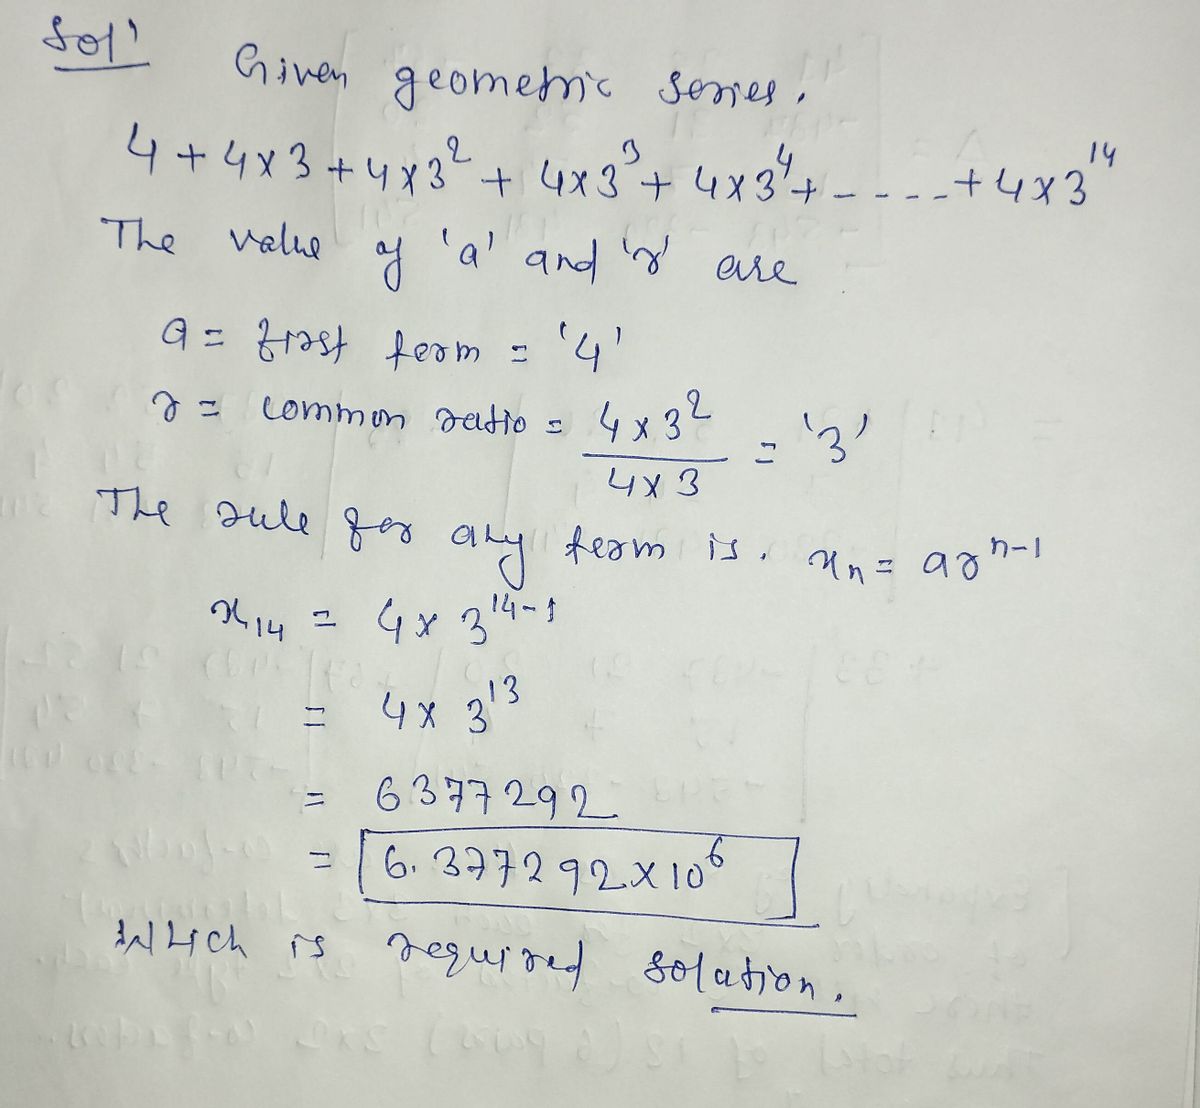 Sol'
Given geometric series.
4 + 4x3 + 4x3² + 4x3³ + 4x3⁴ + - - - - + 4x3¹⁴
The value of 'a' and 'r' are
a = first term = '4'
r = common ratio = 4x3² / 4x3 = '3'
The rule for any term is. xₙ = arⁿ⁻¹
x₁₄ = 4x 3¹⁴⁻¹
= 4x 3¹³
= 6377292
= 6.377292x10⁶
Which is required solation.